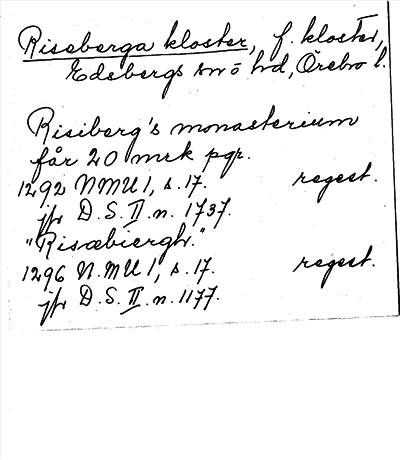 Riseberga kloster, f. kloster,
Edsbergs sn o hd, Örebro l.
Risiberg's monasterium
får 20 mrk pgr.
1292 NMU 1, s. 17. regest.
jfr D.S. II. n. 1737.
"Risæbiergh."
1296 N.MU 1, s. 17. regest.
jfr D.S. II. n. 1177.